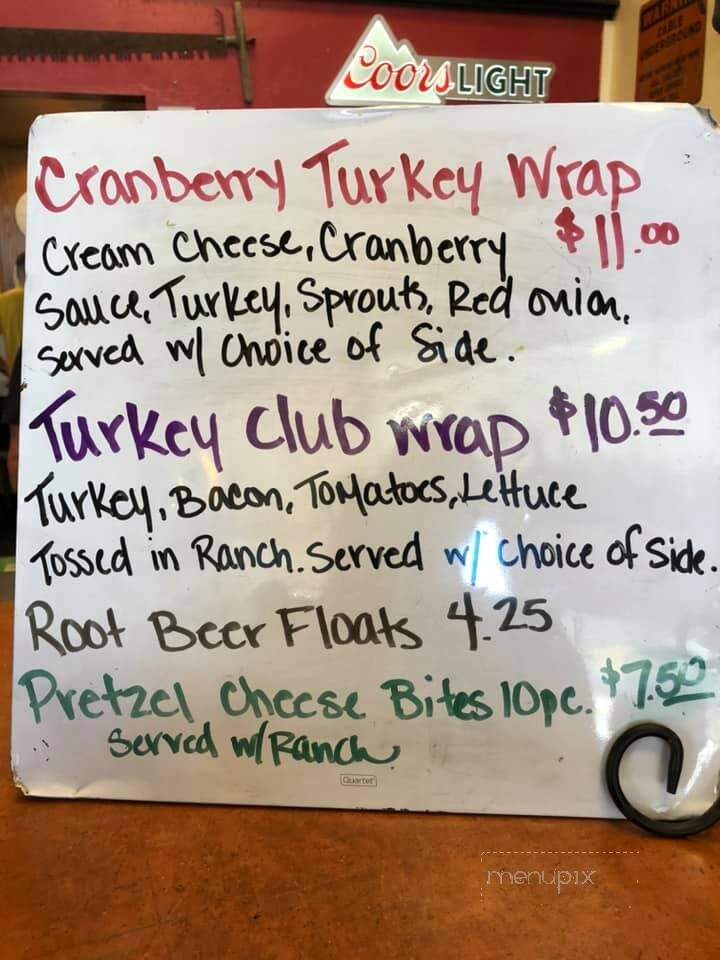 WARNING
CABLE
UNDERGROUND
Coors LIGHT
Cranberry Turkey Wrap
$11.00
Cream Cheese, Cranberry
Sauce, Turkey, Sprouts, Red onion,
Served w/ Choice of Side.
Turkey Club wrap $10.50
Turkey, Bacon, Tomatoes, Lettuce
Tossed in Ranch. Served w/ Choice of Side.
Root Beer Floats 4.25
Pretzel Cheese Bites 10pc. $7.50
Served w/ Ranch
Quartet
menupix